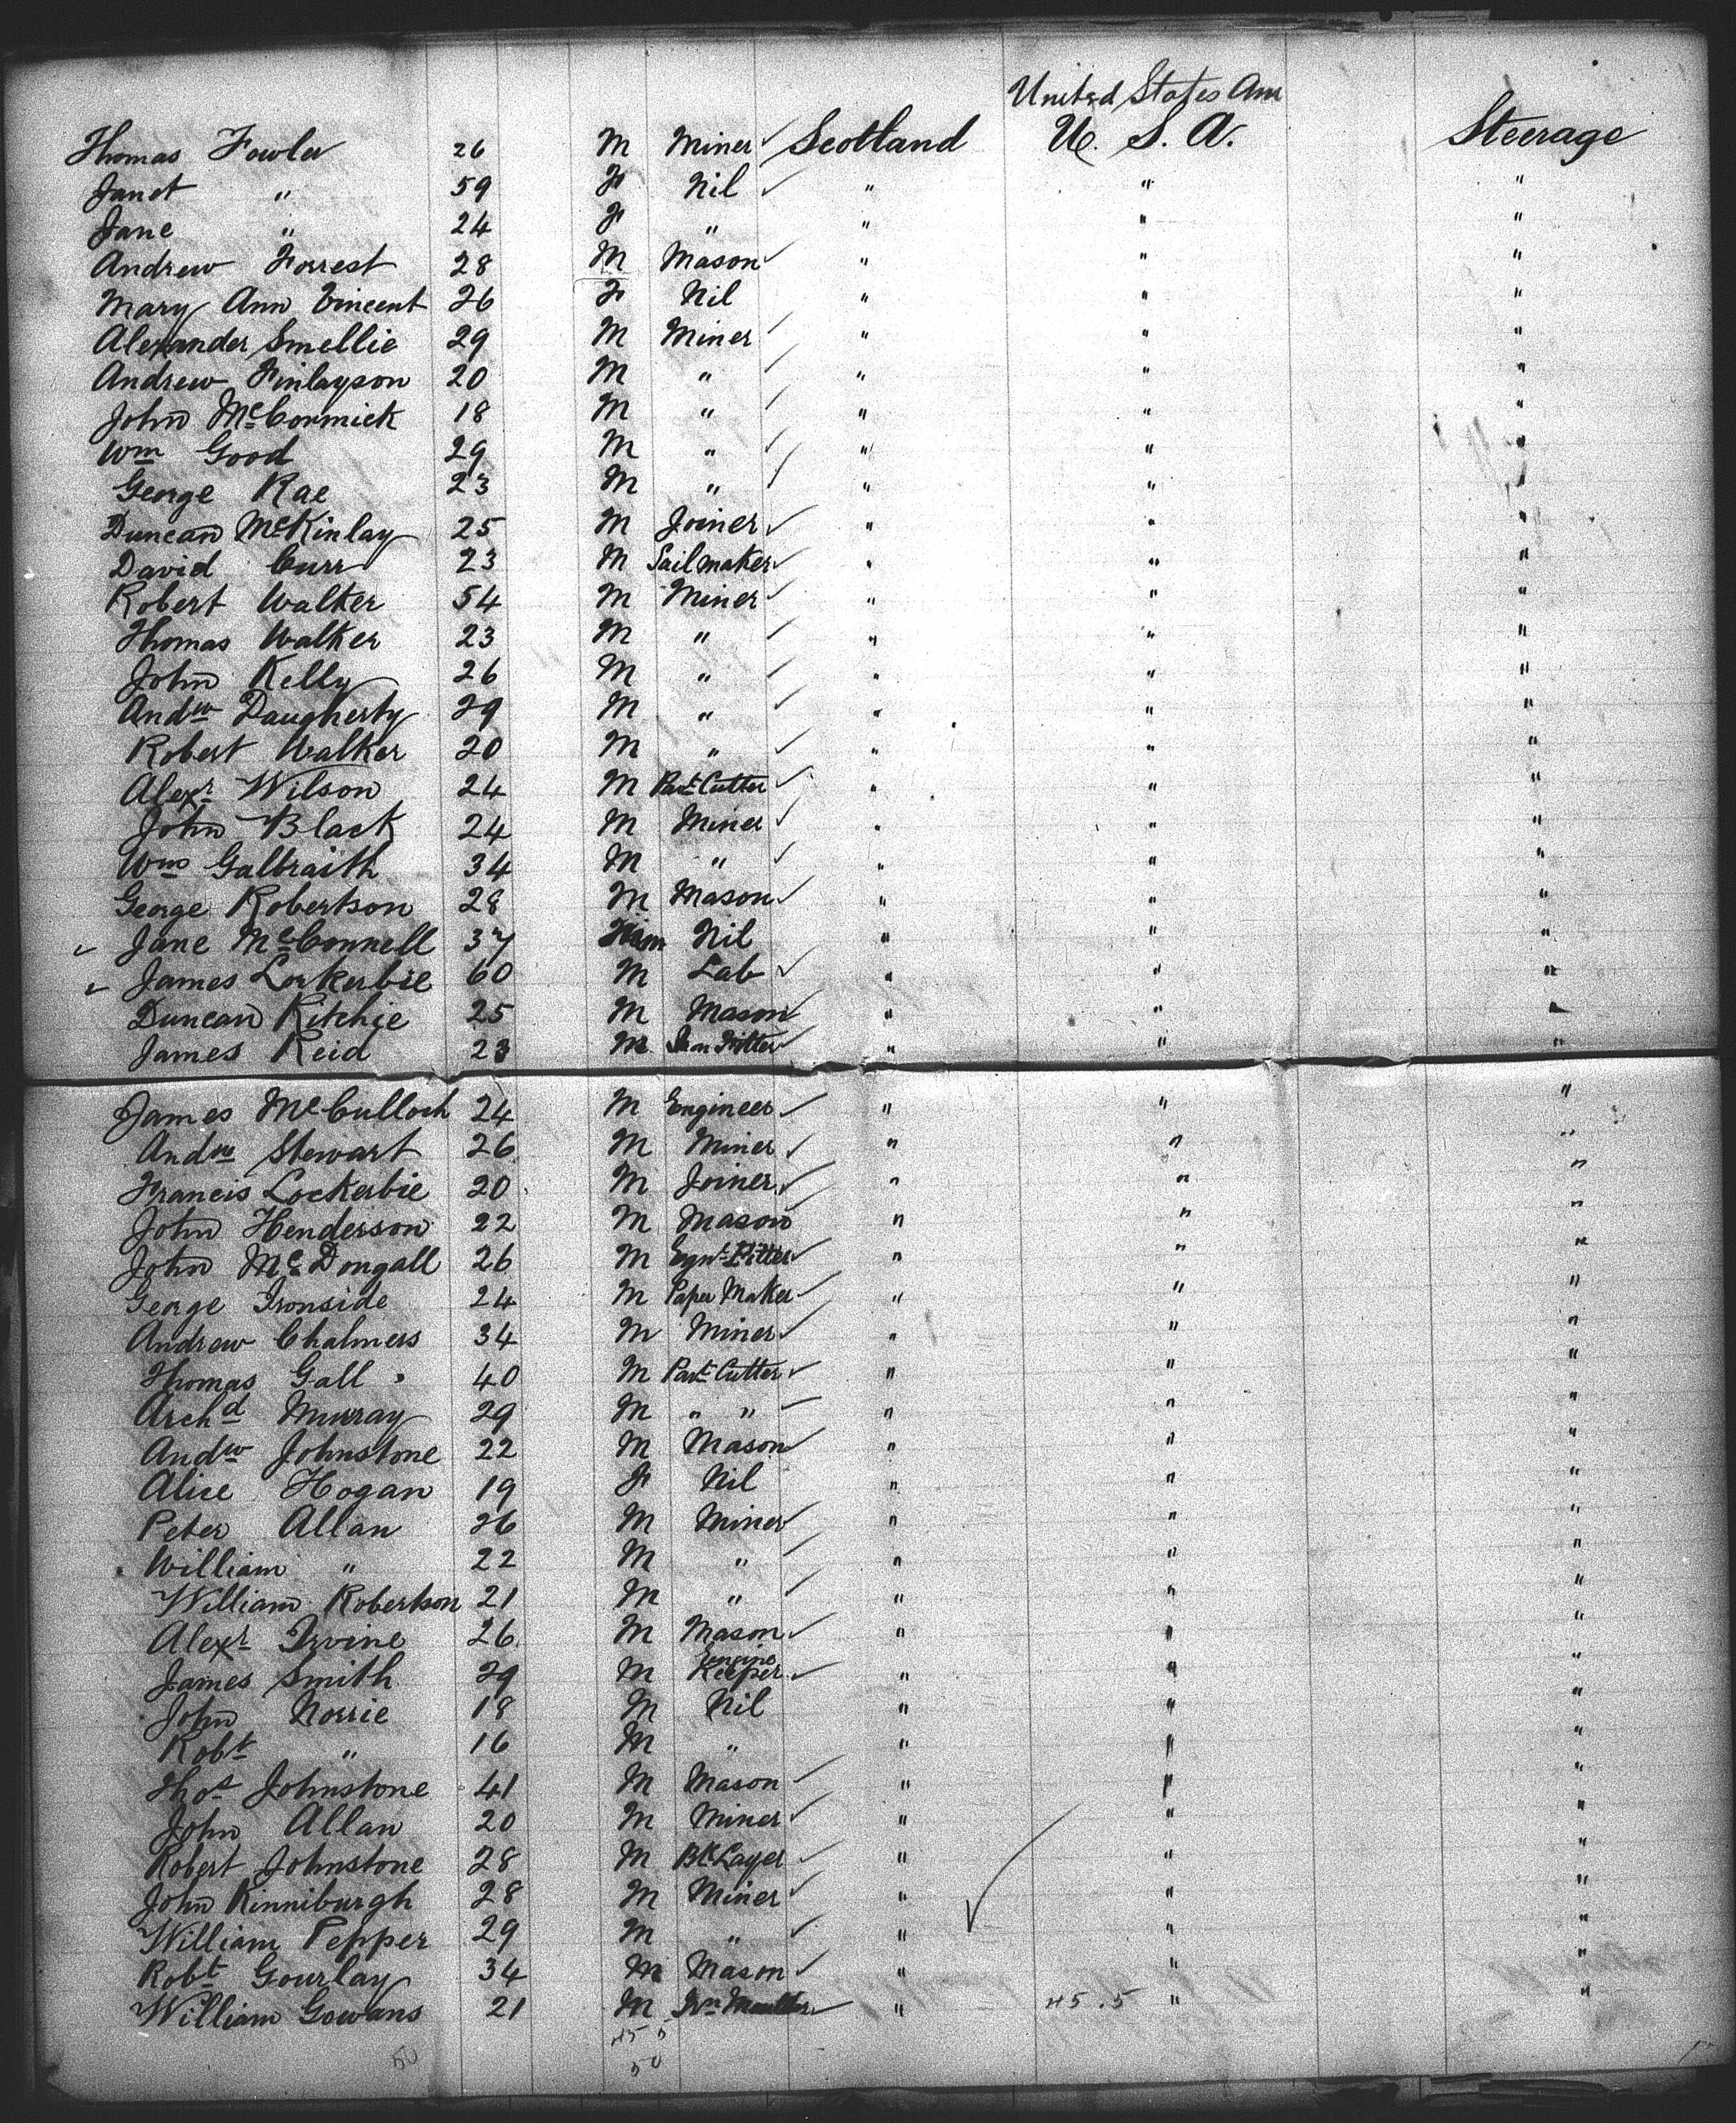 United States Am
Thomas Fowler 26 M Miner ✓ Scotland U. S. A. Steerage
Janet " 59 F Nil ✓ " " "
Jane " 24 F " " " "
Andrew Forrest 28 M Mason ✓ " " "
Mary Ann Vincent 26 F Nil " " "
Alexander Smellie 29 M Miner ✓ " " "
Andrew Finlayson 20 M " ✓ " " "
John McCormick 18 M " ✓ " " "
Wm Good 29 M " ✓ " " "
George Rae 23 M " ✓ " " "
Duncan McKinlay 25 M Joiner ✓ " " "
David Curr 23 M Sailmaker ✓ " " "
Robert Walker 54 M Miner ✓ " " "
Thomas Walker 23 M " ✓ " " "
John Kelly 26 M " ✓ " " "
Andw Daugherty 29 M " ✓ " " "
Robert Walker 20 M " ✓ " " "
Alexr Wilson 24 M Pavt Cutter ✓ " " "
John Black 24 M Miner ✓ " " "
Wm Galbraith 34 M " ✓ " " "
George Robertson 28 M Mason ✓ " " "
✓ Jane McConnell 37 Nil " " "
✓ James Lockerbie 60 M Lab ✓ " " "
Duncan Ritchie 25 M Mason ✓ " " "
James Reid 23 M Iron Fitter ✓ " " "
James McCulloch 24 M Engineer ✓ " " "
Andw Stewart 26 M Miner ✓ " " "
Francis Lockerbie 20 M Joiner ✓ " " "
John Henderson 22 M Mason " " "
John McDougall 26 M Fitter ✓ " " "
George Ironside 24 M Paper Maker ✓ " " "
Andrew Chalmers 34 M Miner ✓ " " "
Thomas Gall 40 M Pavt Cutter ✓ " " "
Archd Murray 29 M " " ✓ " " "
Andw Johnstone 22 M Mason ✓ " " "
Alice Hogan 19 F Nil " " "
Peter Allan 26 M Miner ✓ " " "
William " 22 M " ✓ " " "
William Robertson 21 M " ✓ " " "
Alexr Irvine 26 M Mason ✓ " " "
James Smith 29 M Engine Keeper ✓ " " "
John Norrie 18 M Nil " " "
Robt " 16 M " " " "
Thos Johnstone 41 M Mason ✓ " " "
John Allan 20 M Miner ✓ " " "
Robert Johnstone 28 M Bk Layer ✓ " " "
John Kinniburgh 28 M Miner ✓ " " "
William Pepper 29 M " ✓ " " "
Robt Gourlay 34 M Mason ✓ " " "
William Gowans 21 M Irn Moulder ✓ " 45.5 " "
45 5
50 50